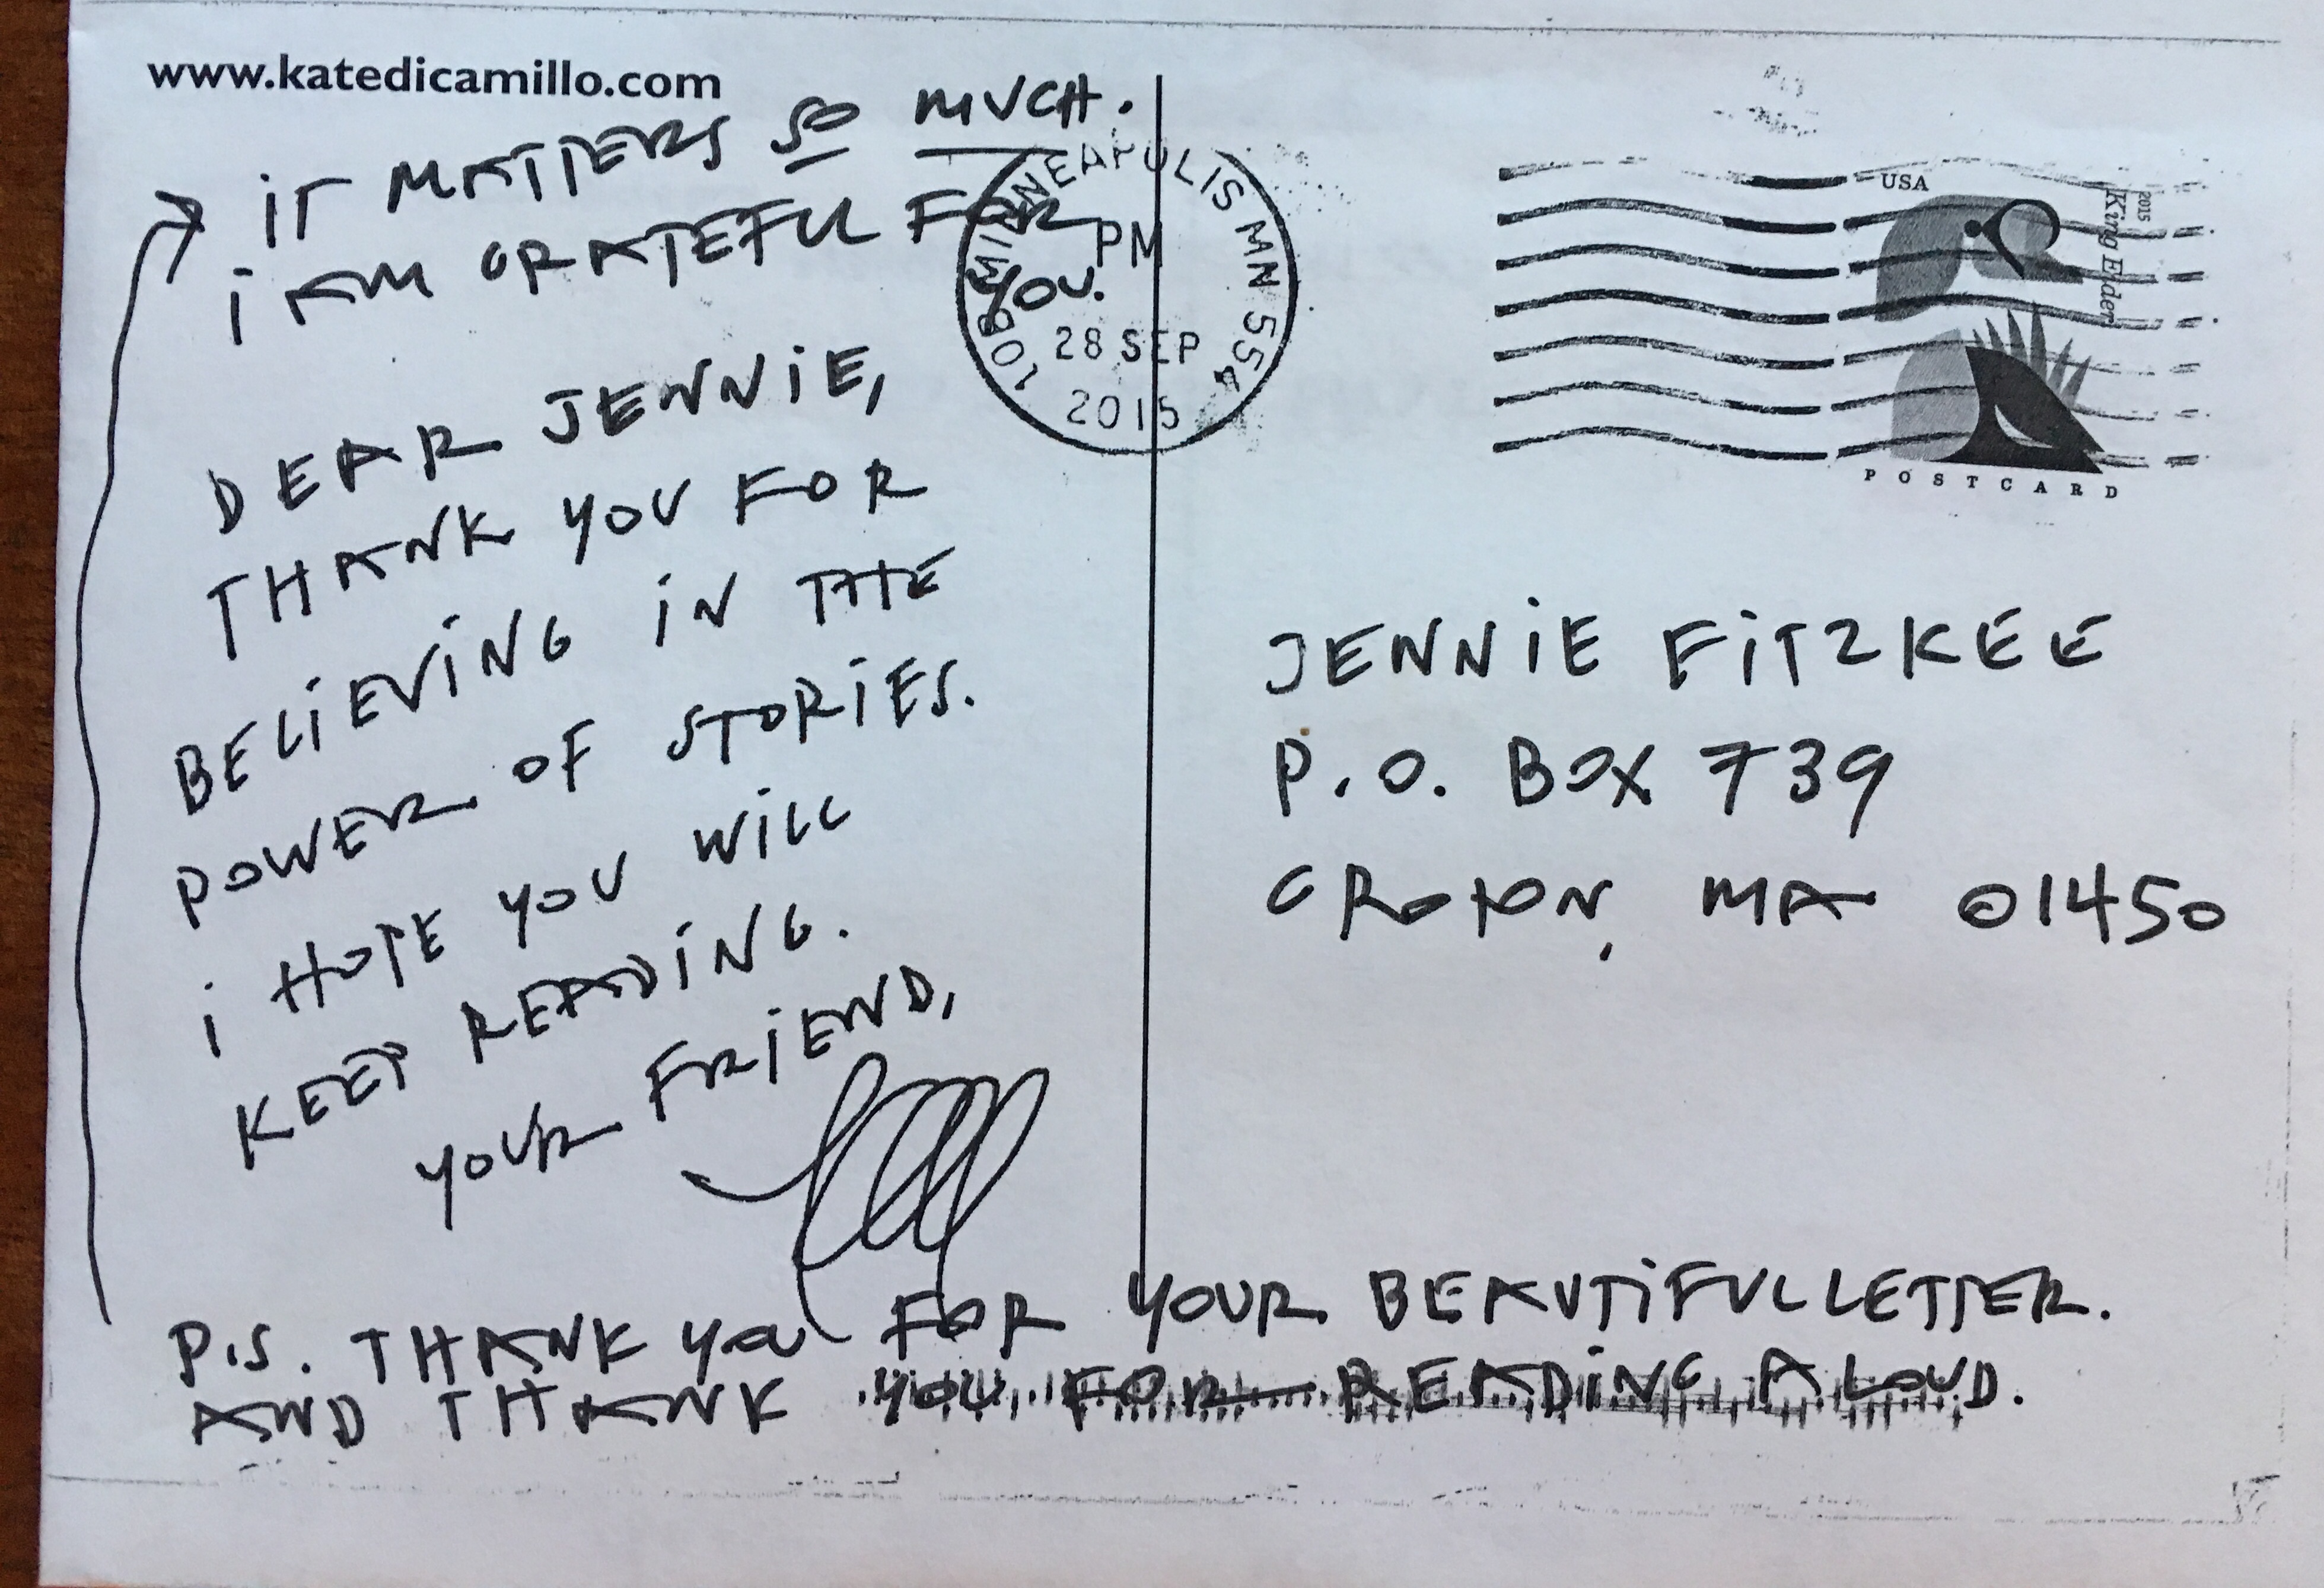 www.katedicamillo.com
DEAR JENNIE,
THANK YOU FOR
BELIEVING IN THE
POWER OF STORIES.
I HOPE YOU WILL
KEEP READING.
YOUR FRIEND,
P.S. THANK YOU FOR YOUR BEAUTIFUL LETTER.
AND THANK YOU FOR READING ALOUD.
IT MATTERS SO MUCH.
I AM GRATEFUL FOR
YOU.
MINNEAPOLIS MN 554
PM
28 SEP
2015
USA
2015
King Eider
POSTCARD
JENNIE FITZKEE
P.O. BOX 739
GROTON, MA 01450